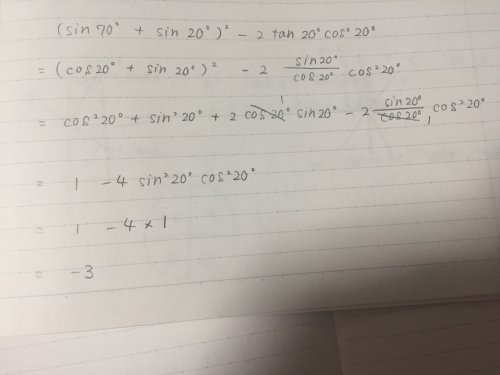 (sin 70° + sin 20°)² - 2 tan 20° cos² 20°
= (cos 20° + sin 20°)² - 2 sin20°/cos 20° cos² 20°
= cos² 20° + sin² 20° + 2 cos 20° 1 sin 20° - 2 sin 20°/cos 20° 1 cos² 20°
= 1 - 4 sin² 20° cos² 20°
= 1 - 4 × 1
= -3